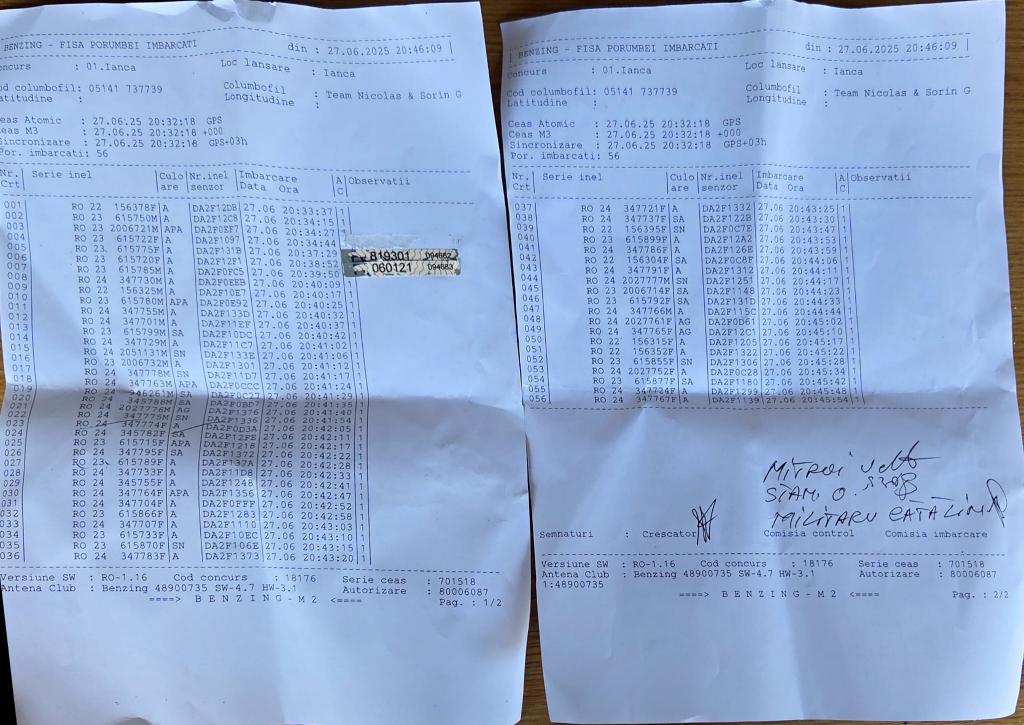 BENZING - FISA PORUMBEI IMBARCATI din : 27.06.2025 20:46:09
oncurs : 01.Ianca Loc lansare : Ianca
od columbofil: 05141 737739 Columbofil : Team Nicolas & Sorin G
atitudine : Longitudine :
eas Atomic : 27.06.25 20:32:18 GPS
Ceas M3 : 27.06.25 20:32:18 +000
Sincronizare : 27.06.25 20:32:18 GPS+03h
Por. imbarcati: 56
Nr. Crt Serie inel Culo are Nr.inel senzor Imbarcare Data Ora A C Observatii
001 RO 22 156378F A DA2F12DB 27.06 20:33:37 1
002 RO 23 615750M A DA2F12C8 27.06 20:34:15 1
003 RO 23 2006721M APA DA2F0EF7 27.06 20:34:27 1
004 RO 23 615722F A DA2F1097 27.06 20:34:44 1
005 RO 23 615775F A DA2F131B 27.06 20:37:29 1
006 RO 23 615720F A DA2F12F1 27.06 20:38:52 1
007 RO 23 615785M A DA2F0FC5 27.06 20:39:50 1
008 RO 24 347730M A DA2F0EEB 27.06 20:40:09 1
009 RO 22 156325M A DA2F10E7 27.06 20:40:17 1
010 RO 23 615780M APA DA2F0E92 27.06 20:40:25 1
011 RO 24 347755M A DA2F133D 27.06 20:40:32 1
012 RO 24 347701M A DA2F11EF 27.06 20:40:37 1
013 RO 23 615799M SA DA2F10DC 27.06 20:40:42 1
014 RO 24 347729M A DA2F11C7 27.06 20:41:02 1
015 RO 24 2051131M SN DA2F133E 27.06 20:41:06 1
016 RO 23 2006732M A DA2F1301 27.06 20:41:12 1
017 RO 24 347778M SN DA2F11D7 27.06 20:41:17 1
018 RO 24 347763M APA DA2F0CCC 27.06 20:41:24 1
019 RO 24 346261M SA DA2F0C27 27.06 20:41:29 1
020 RO 24 345788M SA DA2F0BD7 27.06 20:41:35 1
021 RO 24 2027776M AG DA2F1376 27.06 20:41:40 1
022 RO 24 347775M SN DA2F1336 27.06 20:41:54 1
023 RO 24 347774F A DA2F0D3A 27.06 20:42:05 1
024 RO 24 345782F SA DA2F12FE 27.06 20:42:11 1
025 RO 23 615715F APA DA2F1218 27.06 20:42:17 1
026 RO 24 347795F SA DA2F1372 27.06 20:42:22 1
027 RO 23 615789F A DA2F137A 27.06 20:42:28 1
028 RO 24 347733F A DA2F11D8 27.06 20:42:33 1
029 RO 24 345755F A DA2F1248 27.06 20:42:41 1
030 RO 24 347764F APA DA2F1356 27.06 20:42:47 1
031 RO 24 347704F A DA2F0FFF 27.06 20:42:52 1
032 RO 23 615866F A DA2F1283 27.06 20:42:58 1
033 RO 24 347707F A DA2F1110 27.06 20:43:03 1
034 RO 23 615733F A DA2F10EC 27.06 20:43:10 1
035 RO 23 615870F SN DA2F106E 27.06 20:43:15 1
036 RO 24 347783F A DA2F1373 27.06 20:43:20 1
819301 094682
060121 094683
Versiune SW : RO-1.16 Cod concurs : 18176 Serie ceas : 701518
Antena Club : Benzing 48900735 SW-4.7 HW-3.1 Autorizare : 80006087
====> B E N Z I N G - M 2 <==== Pag. : 1/2
BENZING - FISA PORUMBEI IMBARCATI din : 27.06.2025 20:46:09
oncurs : 01.Ianca Loc lansare : Ianca
Cod columbofil: 05141 737739 Columbofil : Team Nicolas & Sorin G
Latitudine : Longitudine :
Ceas Atomic : 27.06.25 20:32:18 GPS
Ceas M3 : 27.06.25 20:32:18 +000
Sincronizare : 27.06.25 20:32:18 GPS+03h
Por. imbarcati: 56
Nr. Crt Serie inel Culo are Nr.inel senzor Imbarcare Data Ora A C Observatii
037 RO 24 347721F A DA2F1332 27.06 20:43:25 1
038 RO 24 347737F SA DA2F122B 27.06 20:43:30 1
039 RO 22 156395F SN DA2F0C7E 27.06 20:43:47 1
040 RO 23 615899F A DA2F12A2 27.06 20:43:53 1
041 RO 24 347786F A DA2F126E 27.06 20:43:59 1
042 RO 22 156304F SA DA2F0C8F 27.06 20:44:06 1
043 RO 24 347791F A DA2F1312 27.06 20:44:11 1
044 RO 24 2027777M SN DA2F1251 27.06 20:44:17 1
045 RO 23 2006714F SA DA2F1148 27.06 20:44:23 1
046 RO 23 615792F SA DA2F131D 27.06 20:44:33 1
047 RO 24 347766M A DA2F115C 27.06 20:44:44 1
048 RO 24 2027761F AG DA2F0D61 27.06 20:45:02 1
049 RO 24 347765F AG DA2F12C1 27.06 20:45:10 1
050 RO 22 156315F A DA2F1205 27.06 20:45:17 1
051 RO 22 156352F A DA2F1322 27.06 20:45:22 1
052 RO 23 615855F SN DA2F1306 27.06 20:45:28 1
053 RO 24 2027752F A DA2F0C28 27.06 20:45:34 1
054 RO 23 615877F SA DA2F1180 27.06 20:45:42 1
055 RO 24 347724F A DA2F1299 27.06 20:45:48 1
056 RO 24 347767F A DA2F1139 27.06 20:45:54 1
MITROI
STAM O.
MILITARU CĂTĂLIN
Semnaturi : Crescator Comisia control Comisia imbarcare
Versiune SW : RO-1.16 Cod concurs : 18176 Serie ceas : 701518
Antena Club : Benzing 48900735 SW-4.7 HW-3.1 Autorizare : 80006087
1:48900735
====> B E N Z I N G - M 2 <==== Pag. : 2/2